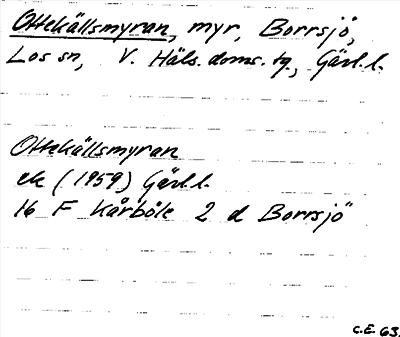 Ottekällsmyran, myr, Borrsjö,
Los sn, V. Häls. doms. tg, Gävl. l.
Ottekällsmyran
ek (1959) Gävl. l.
16 F Kårböle 2 d Borrsjö
C.E. 63.